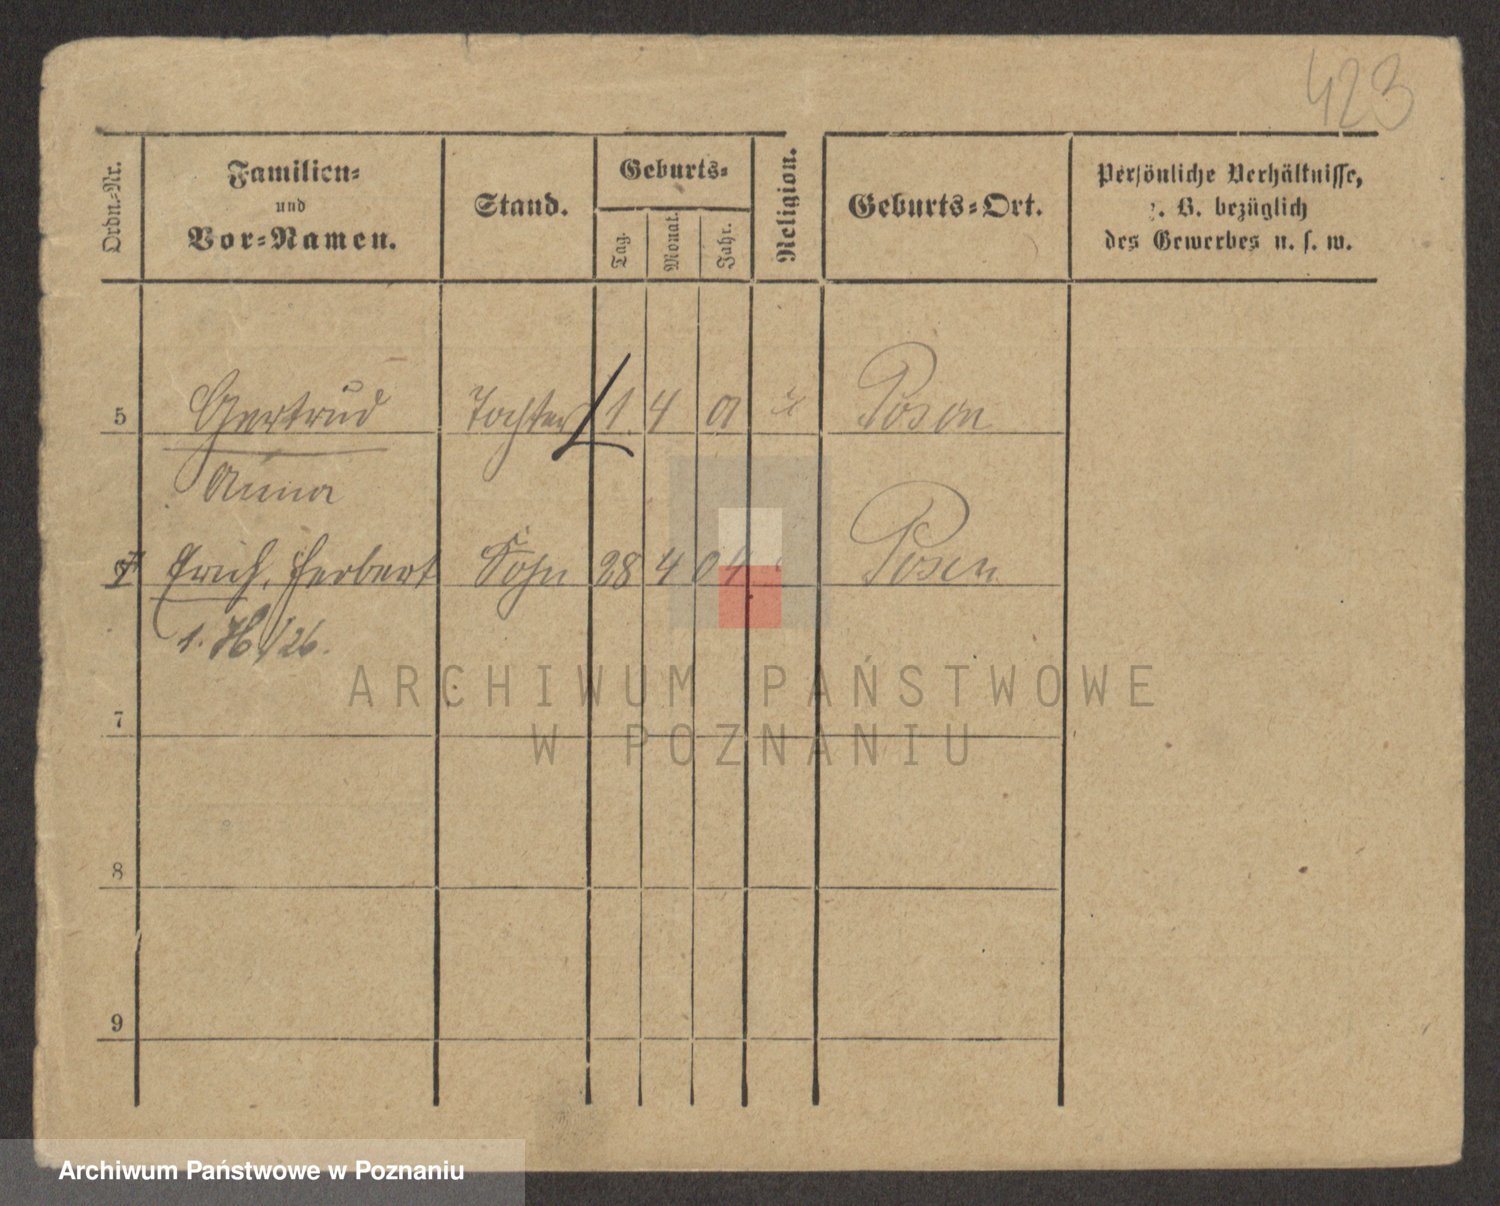 423
Ordn.-Nr.
Familien-
und
Vor-Namen.
Stand.
Geburts-
Tag.
Monat.
Jahr.
Religion.
Geburts-Ort.
Persönliche Verhältnisse,
z. B. bezüglich
des Gewerbes u. s. w.
5 Gertrud Tochter 1. 4 01 Posen
Anna
Erich, Herbert Sohn 28 4 04 Posen
1. /26.
ARCHIWUM PAŃSTWOWE
7
W POZNANIU
8
9
Archiwum Państwowe w Poznaniu